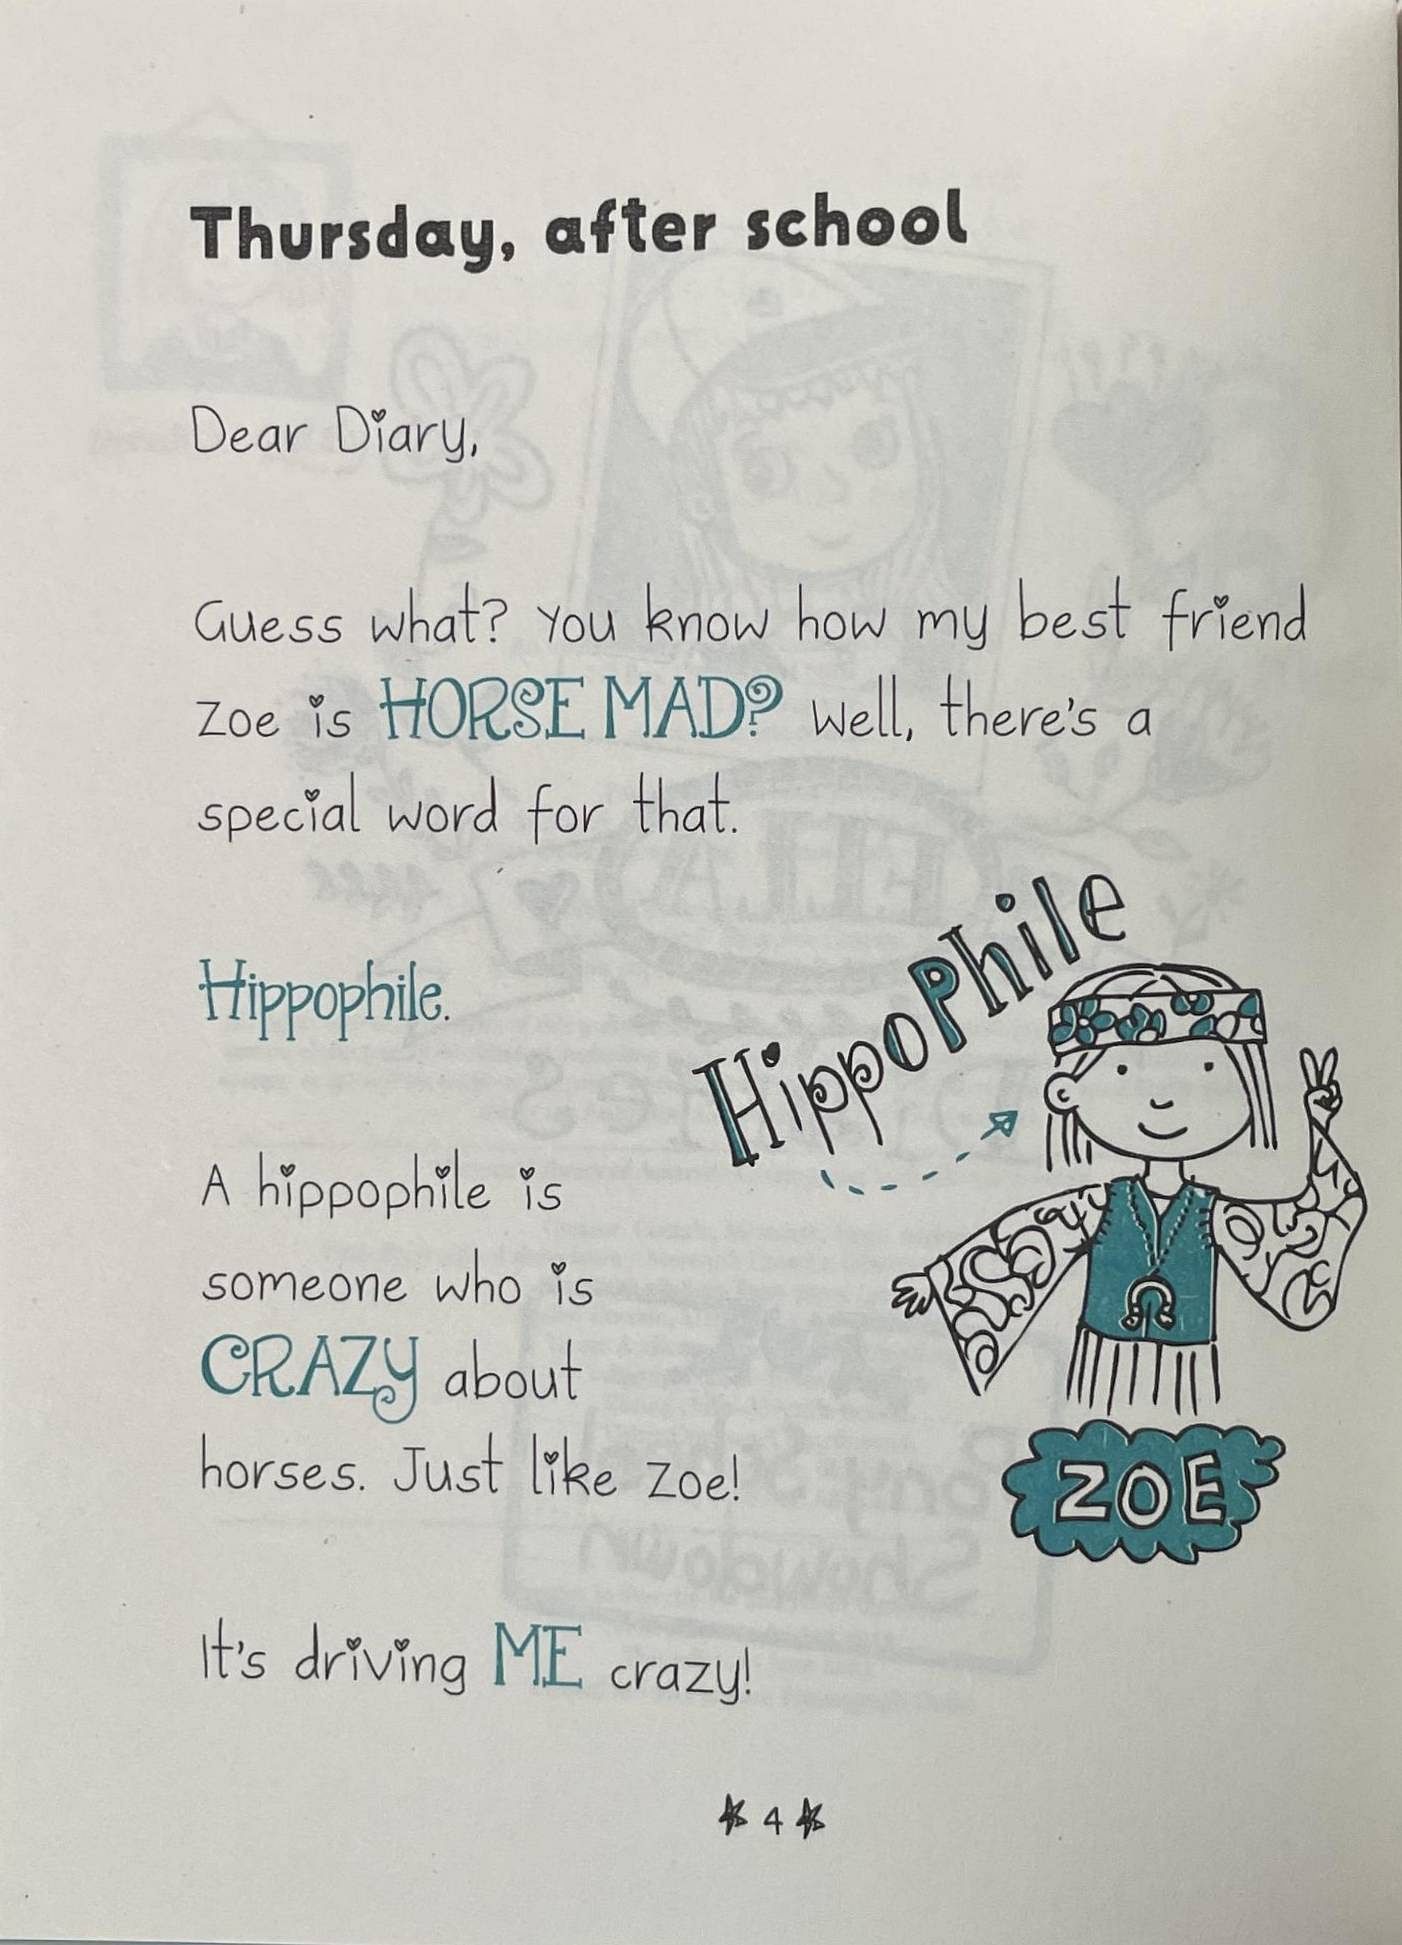 Thursday, after school
Dear Diary,
Guess what? You know how my best friend
Zoe is HORSE MAD? Well, there's a
special word for that.
Hippophile.
Hippophile
A hippophile is
someone who is
CRAZY about
horses. Just like Zoe!
ZOE
It's driving ME crazy!
4